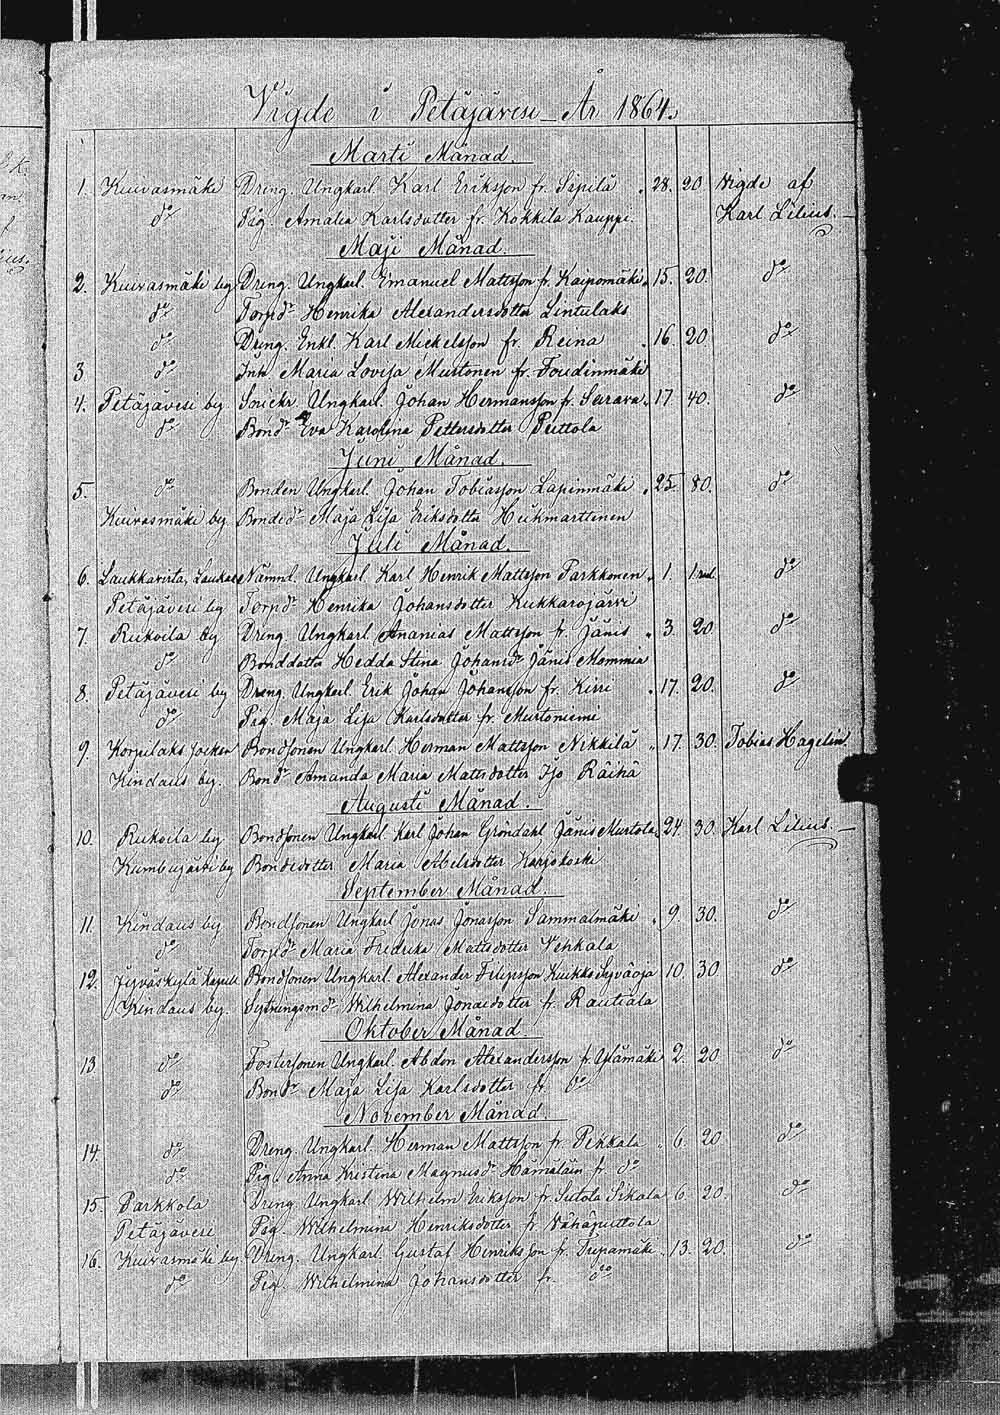 Vigde i Petäjävesi År 1864.
Marti Månad.
1. Kuivasmäki Dreng. Ungkarl Karl Eriksson fr. Sipilä 28. 20 Vigde af
do Pig. Amalia Karlsdotter fr. Kokkila Kauppi. Karl Lilius.
Maji Månad.
2. Kuivasmäki by Dreng. Ungkarl. Emanuel Mattsson fr. Kaipomäki 15. 20. do
do Torpdr Henrika Alexandersdotter Lintulaks
do Dreng. Enkl. Karl Mickelsson fr. Reina 16. 20 do
3 do Inh. Maria Lovisa Murtonen fr. Toudinmäki
4. Petäjävesi by. Snickr Ungkarl. Johan Hermansson fr. Sarava 17 40. do
do Bondr Eva Karolina Pettersdotter Puttola
Juni Månad.
5. do Bonden Ungkarl. Johan Tobiasson Lapinmäki 25 80. do
Kuivasmäki by Bondedr Maja Lisa Eriksdotter Huhmarttinen
Juli Månad.
6. Laukkavirta, Laukas Nämnd. Ungkarl. Karl Henrik Mattsson Parkkonen 1. 1 rub. do
Petäjävesi by Torpdr Henrika Johansdotter Kukkarojärvi
7. Ruikoila by Dreng. Ungkarl. Ananias Mattsson fr. Jänis 3. 20 do
do Bonddotter Hedda Stina Johansdr Jänis Mommia
8. Petäjävesi by Dreng. Ungkarl. Erik Johan Johansson fr. Kirri 17. 20. do
do Pig. Maja Lisa Karlsdotter fr. Murtoniemi
9. Korpilaks socken Bondsonen Ungkarl. Herman Mattsson Nikkilä 17. 30. Tobias Hagelin
Kindaus by. Bondr Amanda Maria Mattsdotter Iso Räihä
Augusti Månad.
10. Ruikoila by Bondsonen Ungkarl Karl Johan Gröndahl Jänis Murtola 24. 30. Karl Lilius.
Kumbujärvi by Bondedotter Maria Abelsdotter Karjokoski
September Månad.
11. Kindaus by Bondsonen Ungkarl Jonas Jonasson Sammalmäki 9. 30. do
do Torpdr Maria Fredrika Mattsdotter Vehkala
12. Jyväskylä kapell Bondsonen Ungkarl. Alexander Filipsson Kuikka Syväoja 10. 30 do
Kindaus by. Sytningsmdr Wilhelmina Jonaedotter fr. Rautiala
Oktober Månad.
13 do Fostersonen Ungkarl. Abdon Alexandersson fr Ylämäki 2. 20 do
do Bondr Maja Lisa Karlsdotter fr. do
November Månad.
14. do Dreng. Ungkarl. Herman Mattsson fr. Pekkala 6. 20 do
do Pig. Anna Kristina Magnusdr Hämäläin fr. do
15. Parkkola Dreng. Ungkarl Wilhelm Eriksson fr. Sutola Sikala 6. 20. do
Petäjävesi Pig. Wilhelmina Henriksdotter fr Vähäputtola
16. Kuivasmäki by Dreng. Ungkarl. Gustaf Henriksson fr. Tiipamäki 13. 20. do
do Pig. Wilhelmina Johansdotter fr. do